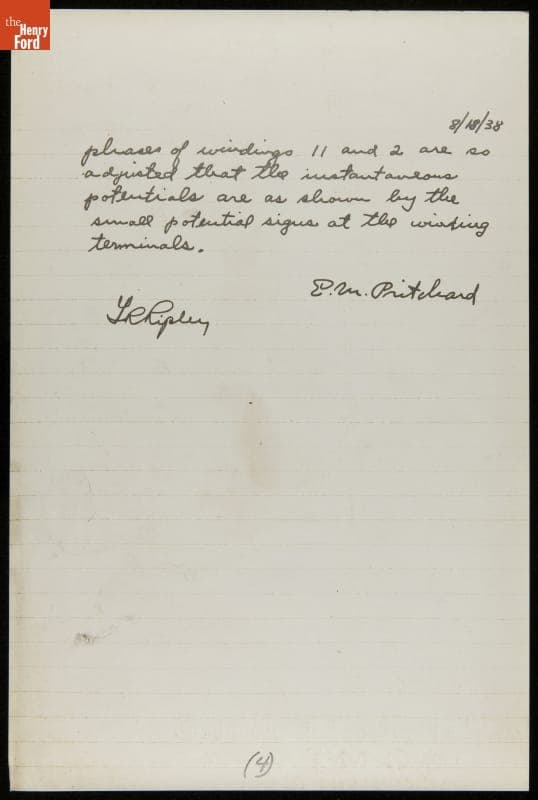 the
Henry
Ford
8/18/38
phases of windings 11 and 2 are so
adjusted that the instantaneous
potentials are as shown by the
small potential signs at the winding
terminals.
E. M. Pritchard
Ripley
(4)